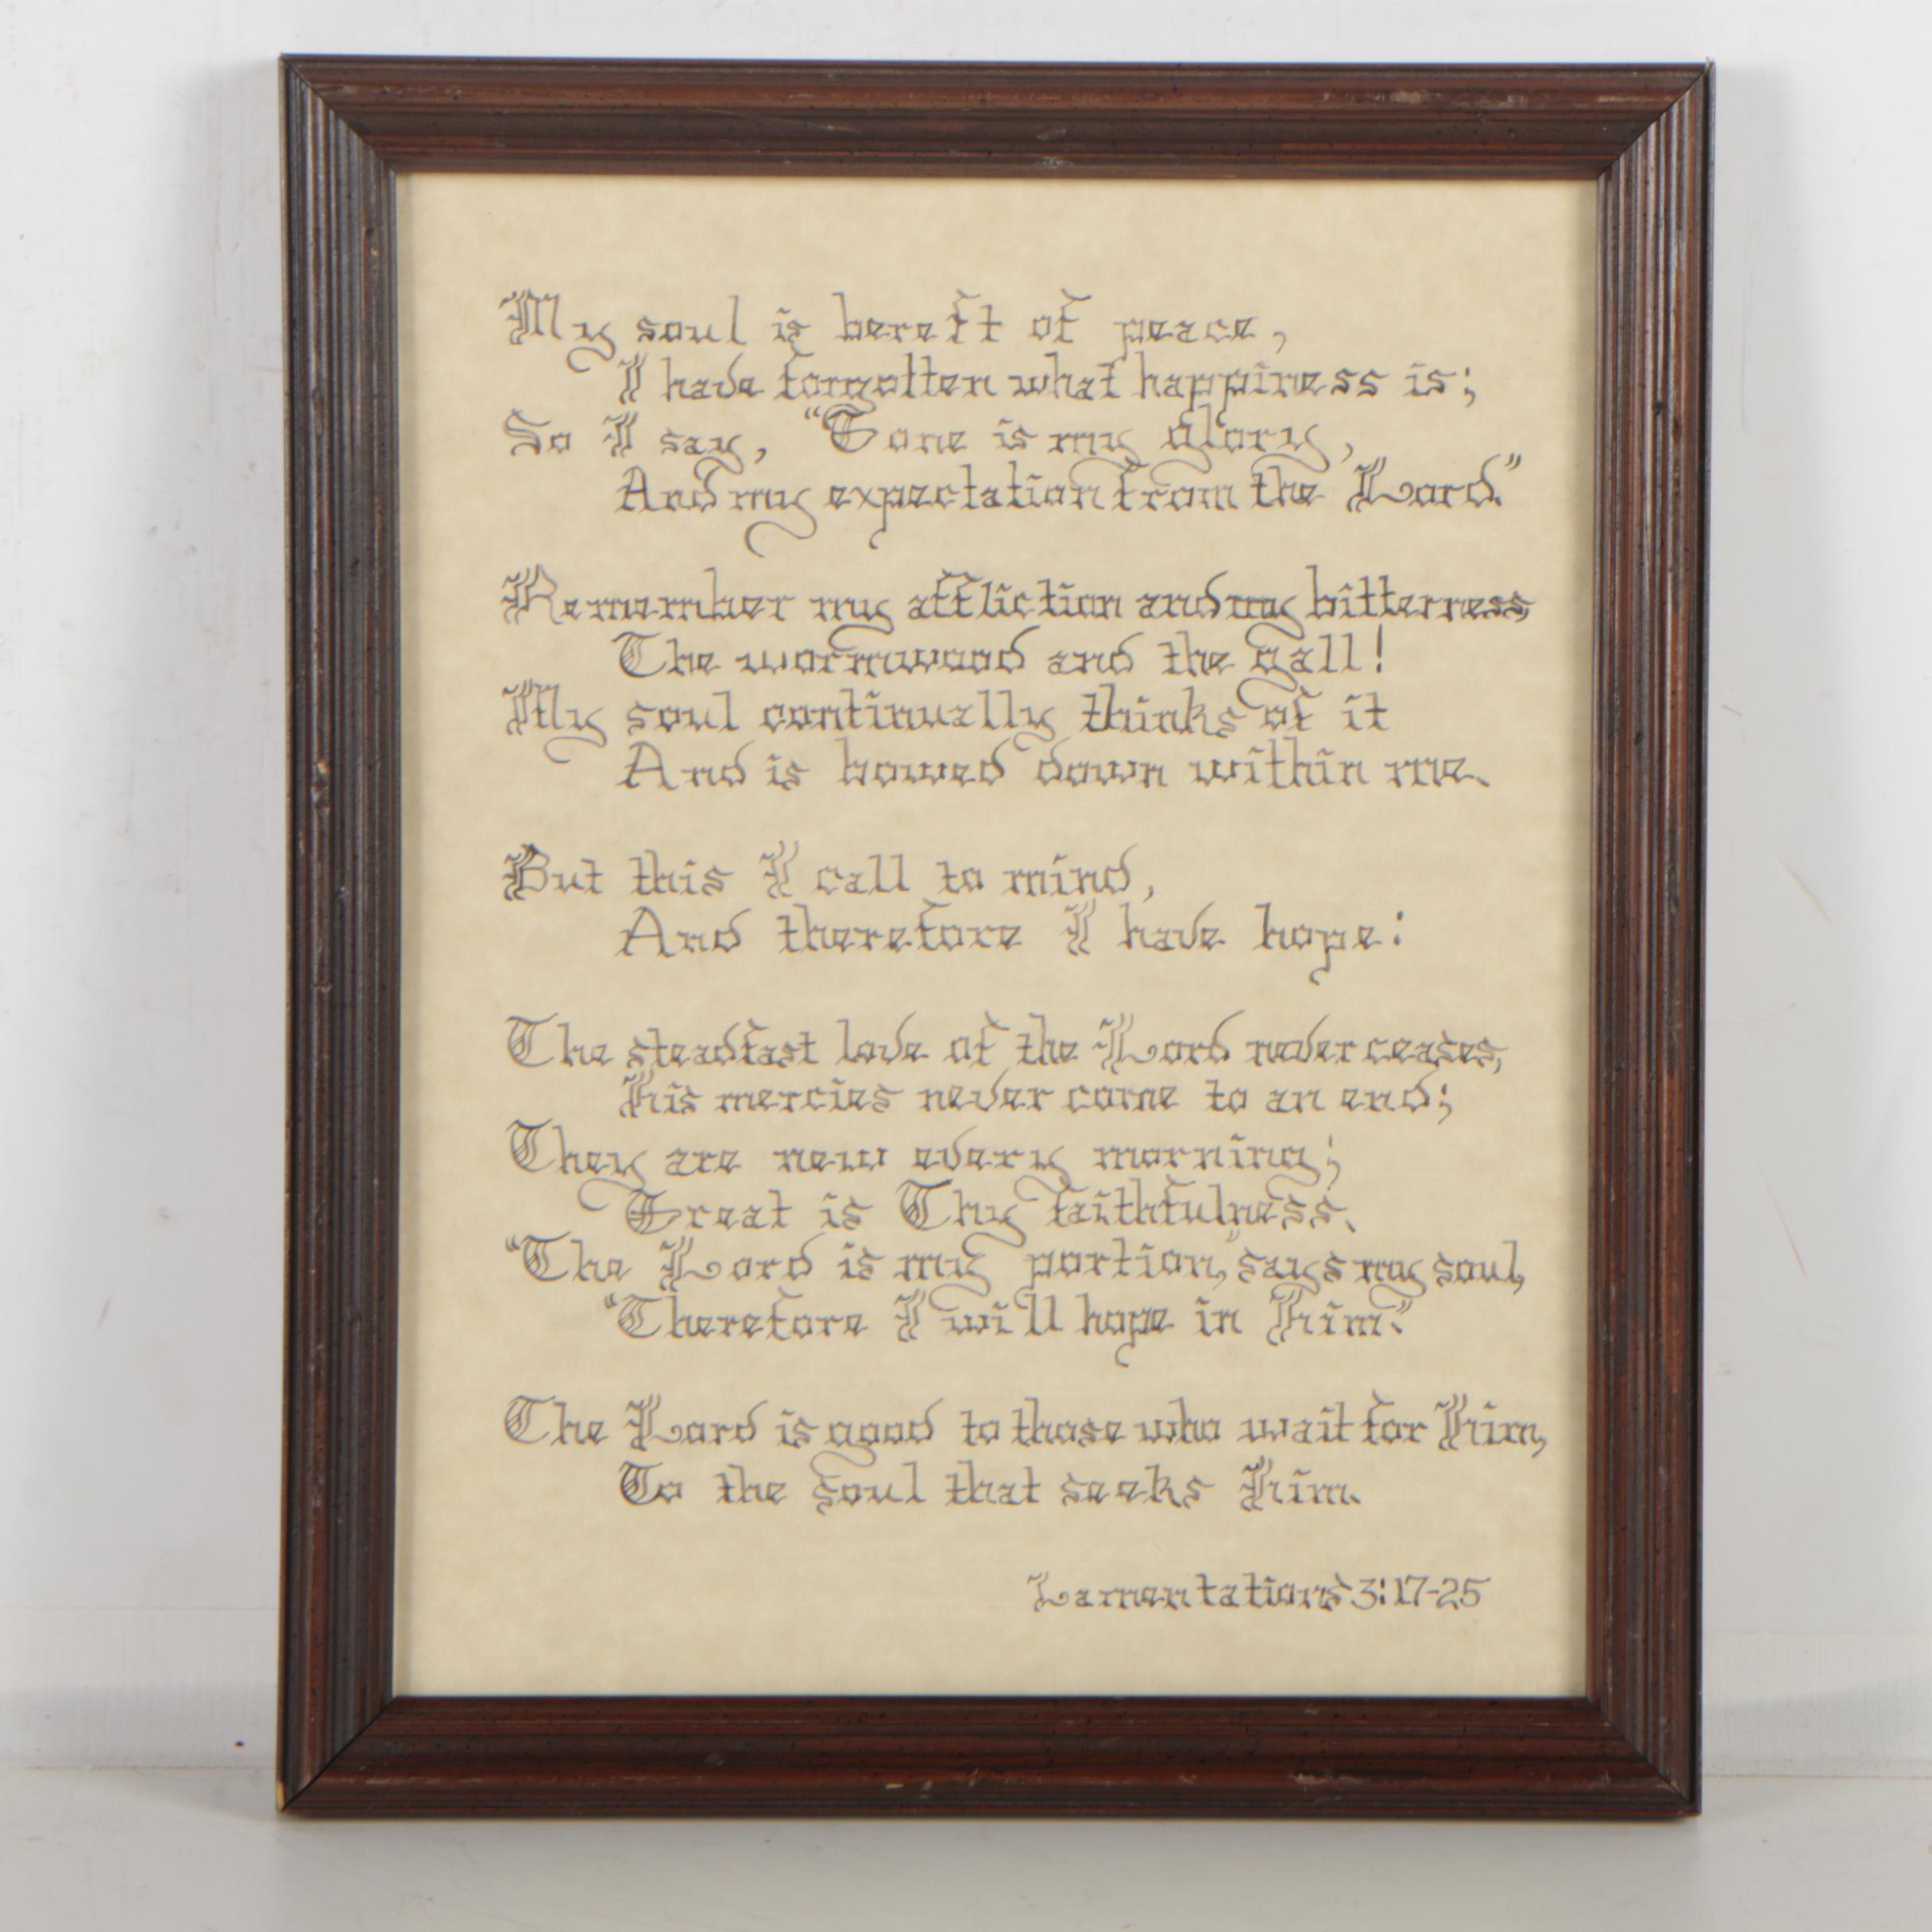 My soul is bereft of peace,
I have forgotten what happiness is;
So I say, "Gone is my glory,
And my expectation from the Lord."
Remember my affliction and my bitterness
The wormwood and the gall!
My soul continually thinks of it
And is bowed down within me.
But this I call to mind,
And therefore I have hope:
The steadfast love of the Lord never ceases,
His mercies never come to an end;
They are new every morning;
Great is Thy faithfulness.
"The Lord is my portion," says my soul,
"Therefore I will hope in Him."
The Lord is good to those who wait for Him,
To the soul that seeks Him.
Lamentations 3:17-25